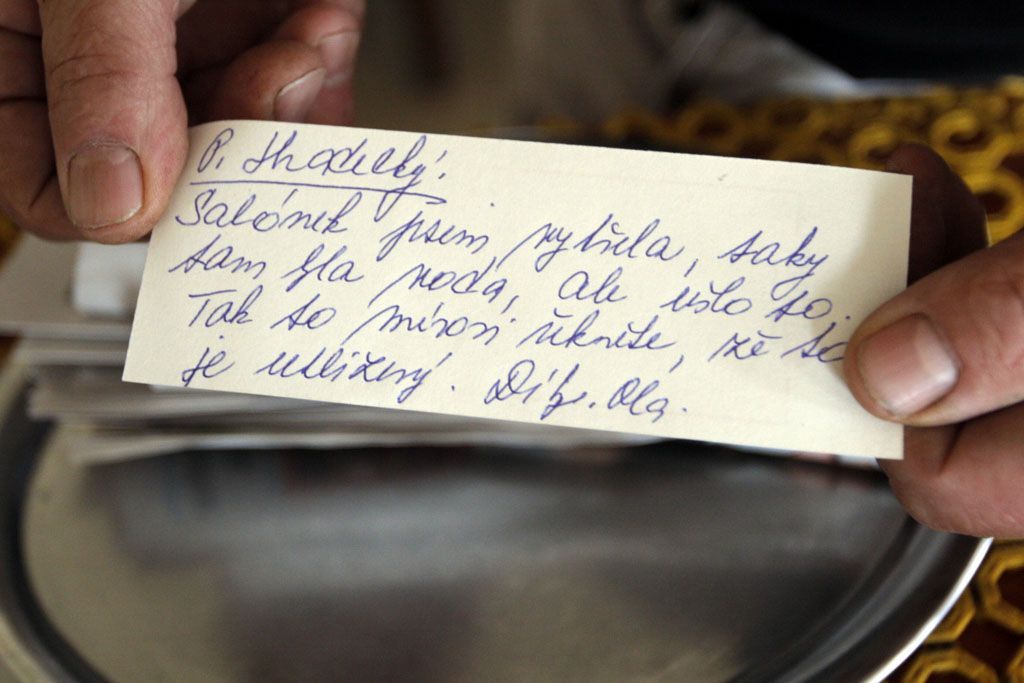 P. Hradecký!
Salónek jsem vytřela, taky
tam šla voda, ale ušlo to.
Tak to mírovi řekněte, že to
je uklizený. Díky. Ola.